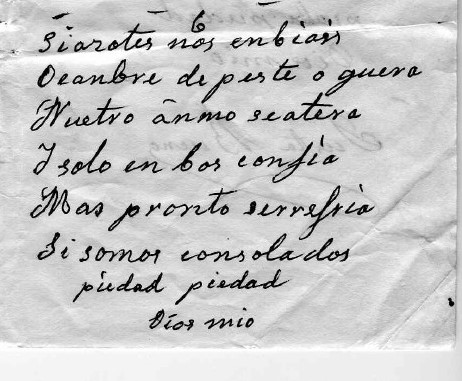 6
Siazotes nos enbiais
Oeanbre de peste o guera
Nuetro ánmo seatera
I solo en bos confia
Mas pronto serresfria
Si somos consolados
piedad piedad
Dios mio